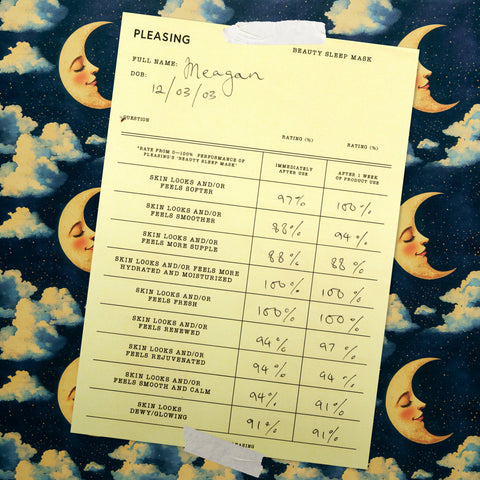 PLEASING
BEAUTY SLEEP MASK
FULL NAME: Meagan
DOB: 12/03/03
QUESTION
RATING (%) RATING (%)
"RATE FROM 0—100% PERFORMANCE OF
PLEASING'S 'BEAUTY SLEEP MASK"
IMMEDIATELY
AFTER USE
AFTER 1 WEEK
OF PRODUCT USE
SKIN LOOKS AND/OR
FEELS SOFTER
97% 100%
SKIN LOOKS AND/OR
FEELS SMOOTHER
88% 94%
SKIN LOOKS AND/OR
FEELS MORE SUPPLE
88% 88%
SKIN LOOKS AND/OR FEELS MORE
HYDRATED AND MOISTURIZED
100% 100%
SKIN LOOKS AND/OR
FEELS FRESH
100% 100%
SKIN LOOKS AND/OR
FEELS RENEWED
94% 97%
SKIN LOOKS AND/OR
FEELS REJUVENATED
94% 94%
SKIN LOOKS AND/OR
FEELS SMOOTH AND CALM
94% 91%
SKIN LOOKS
DEWY/GLOWING
91% 91%